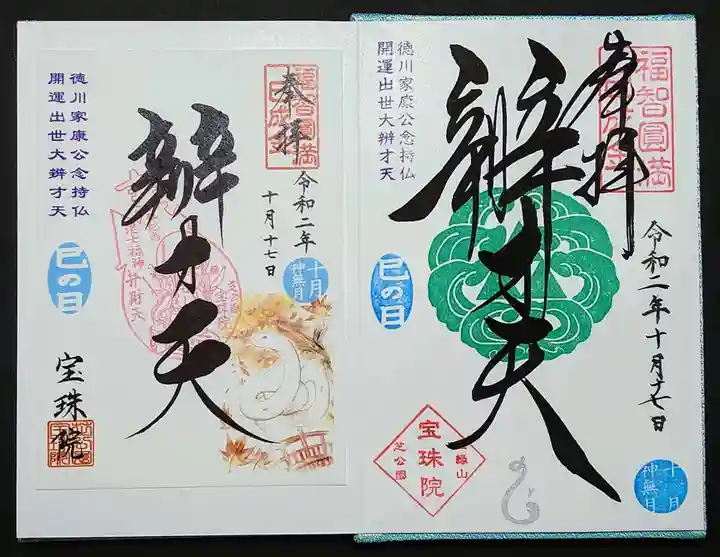 福智圓満
奉拝
徳川家康公念持仏
開運出世大辨才天
巳の日
辨才天
令和二年
十月十七日
十月
神無月
弁財天
宝珠院
福智圓満
奉拝
徳川家康公念持仏
開運出世大辨才天
巳の日
辨才天
令和二年十月十七日
宝珠院
芝公園
十月
神無月